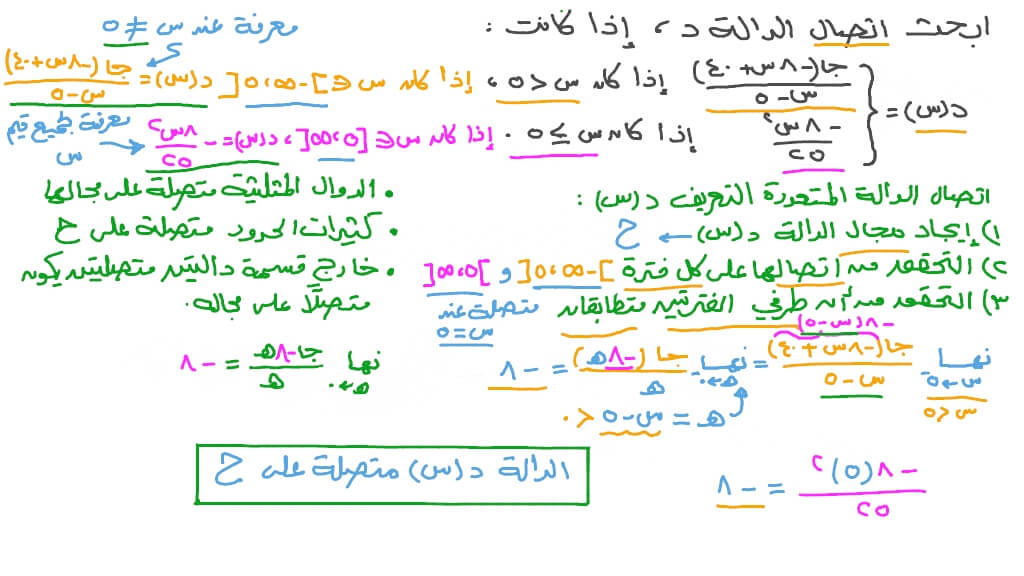 ابحث اتصال الدالة د ، إذا كانت :
معرفة عند س ≠ ٥
د(س) = { جا(-٨س+٤٠) / س-٥ إذا كان س < ٥ ، إذا كان س ∈ ]-∞،٥[ د(س) = جا(-٨س+٤٠) / س-٥
-٨س² / ٢٥ إذا كان س ≥ ٥ . إذا كان س ∈ [٥،∞[ ، د(س) = -٨س² / ٢٥
معرفة لجميع قيم س
اتصال الدالة المتعددة التعريف د(س) :
١) إيجاد مجال الدالة د(س) ← ح
٢) التحقق من اتصالها على كل فترة ]-∞،٥[ و ]٥،∞[
٣) التحقق من أن طرفي الفترتين متطابقان متصلة عند س=٥
• الدوال المثلثية متصلة على مجالها
• كثيرات الحدود متصلة على ح
• خارج قسمة داليتين متصلتين يكون
متصلًا على مجاله.
-٨(س-٥)
نهـا س←٥- س<٥ جا(-٨س+٤٠) / س-٥ = نهـا هـ←٠- جا(-٨هـ) / هـ = -٨
هـ = س-٥ < ٠
نهـا هـ←٠ جا-٨هـ / هـ = -٨
-٨(٥)² / ٢٥ = -٨
الدالة د(س) متصلة على ح